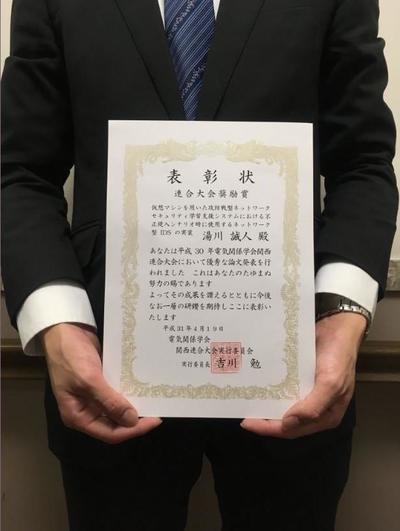 表彰状
連合大会奨励賞
仮想マシンを用いた攻防戦型ネットワーク
セキュリティ学習支援システムにおける不
正侵入シナリオ時に使用するネットワーク
型IDSの実装
湯川 誠人 殿
あなたは平成30年電気関係学会関西
連合大会において優秀な論文発表を行
われました これはあなたのたゆまぬ
努力の賜であります
よってその成果を讃えるとともに今後
なお一層の研鑽を期待しここに表彰い
たします
平成31年4月19日
電気関係学会
関西連合大会実行委員会
実行委員長 吉川 勉